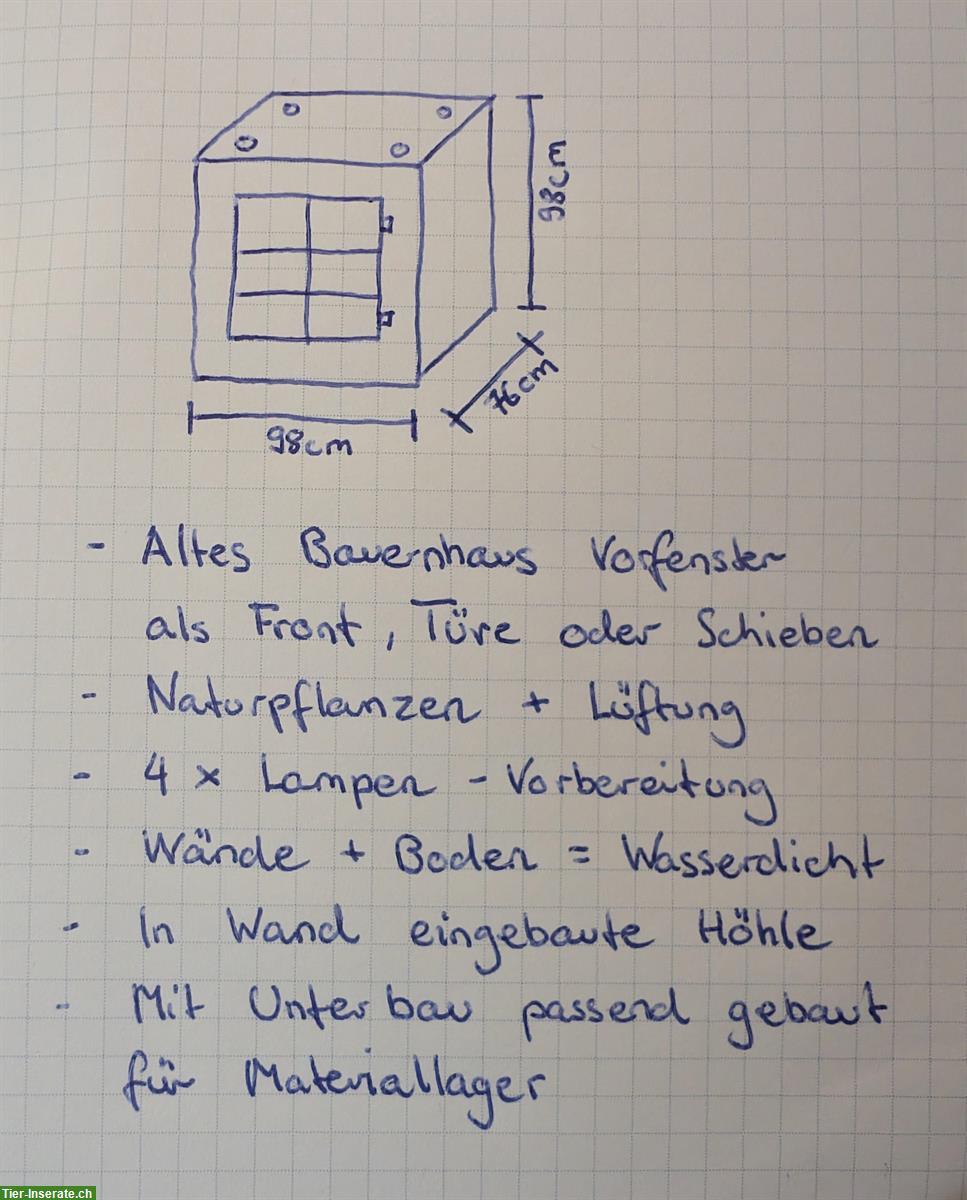 98cm
76cm
98cm
- Altes Bauernhaus Vorfenster
als Front, Türe oder Schieben
- Naturpflanzen + Lüftung
- 4 x Lampen - Vorbereitung
- Wände + Boden = Wasserdicht
- In Wand eingebaute Höhle
- Mit Unterbau passend gebaut
für Materiallager
Tier-Inserate.ch